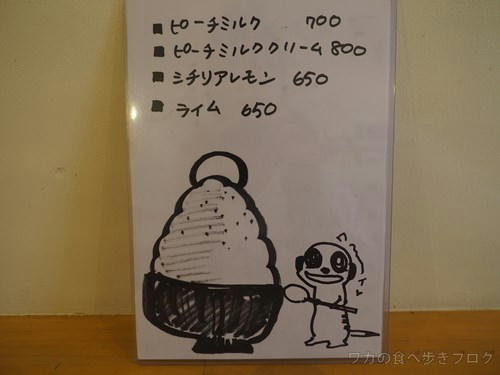 ■ ピーチミルク 700
■ ピーチミルククリーム 800
■ シチリアレモン 650
■ ライム 650
ワカの食べ歩きブログ